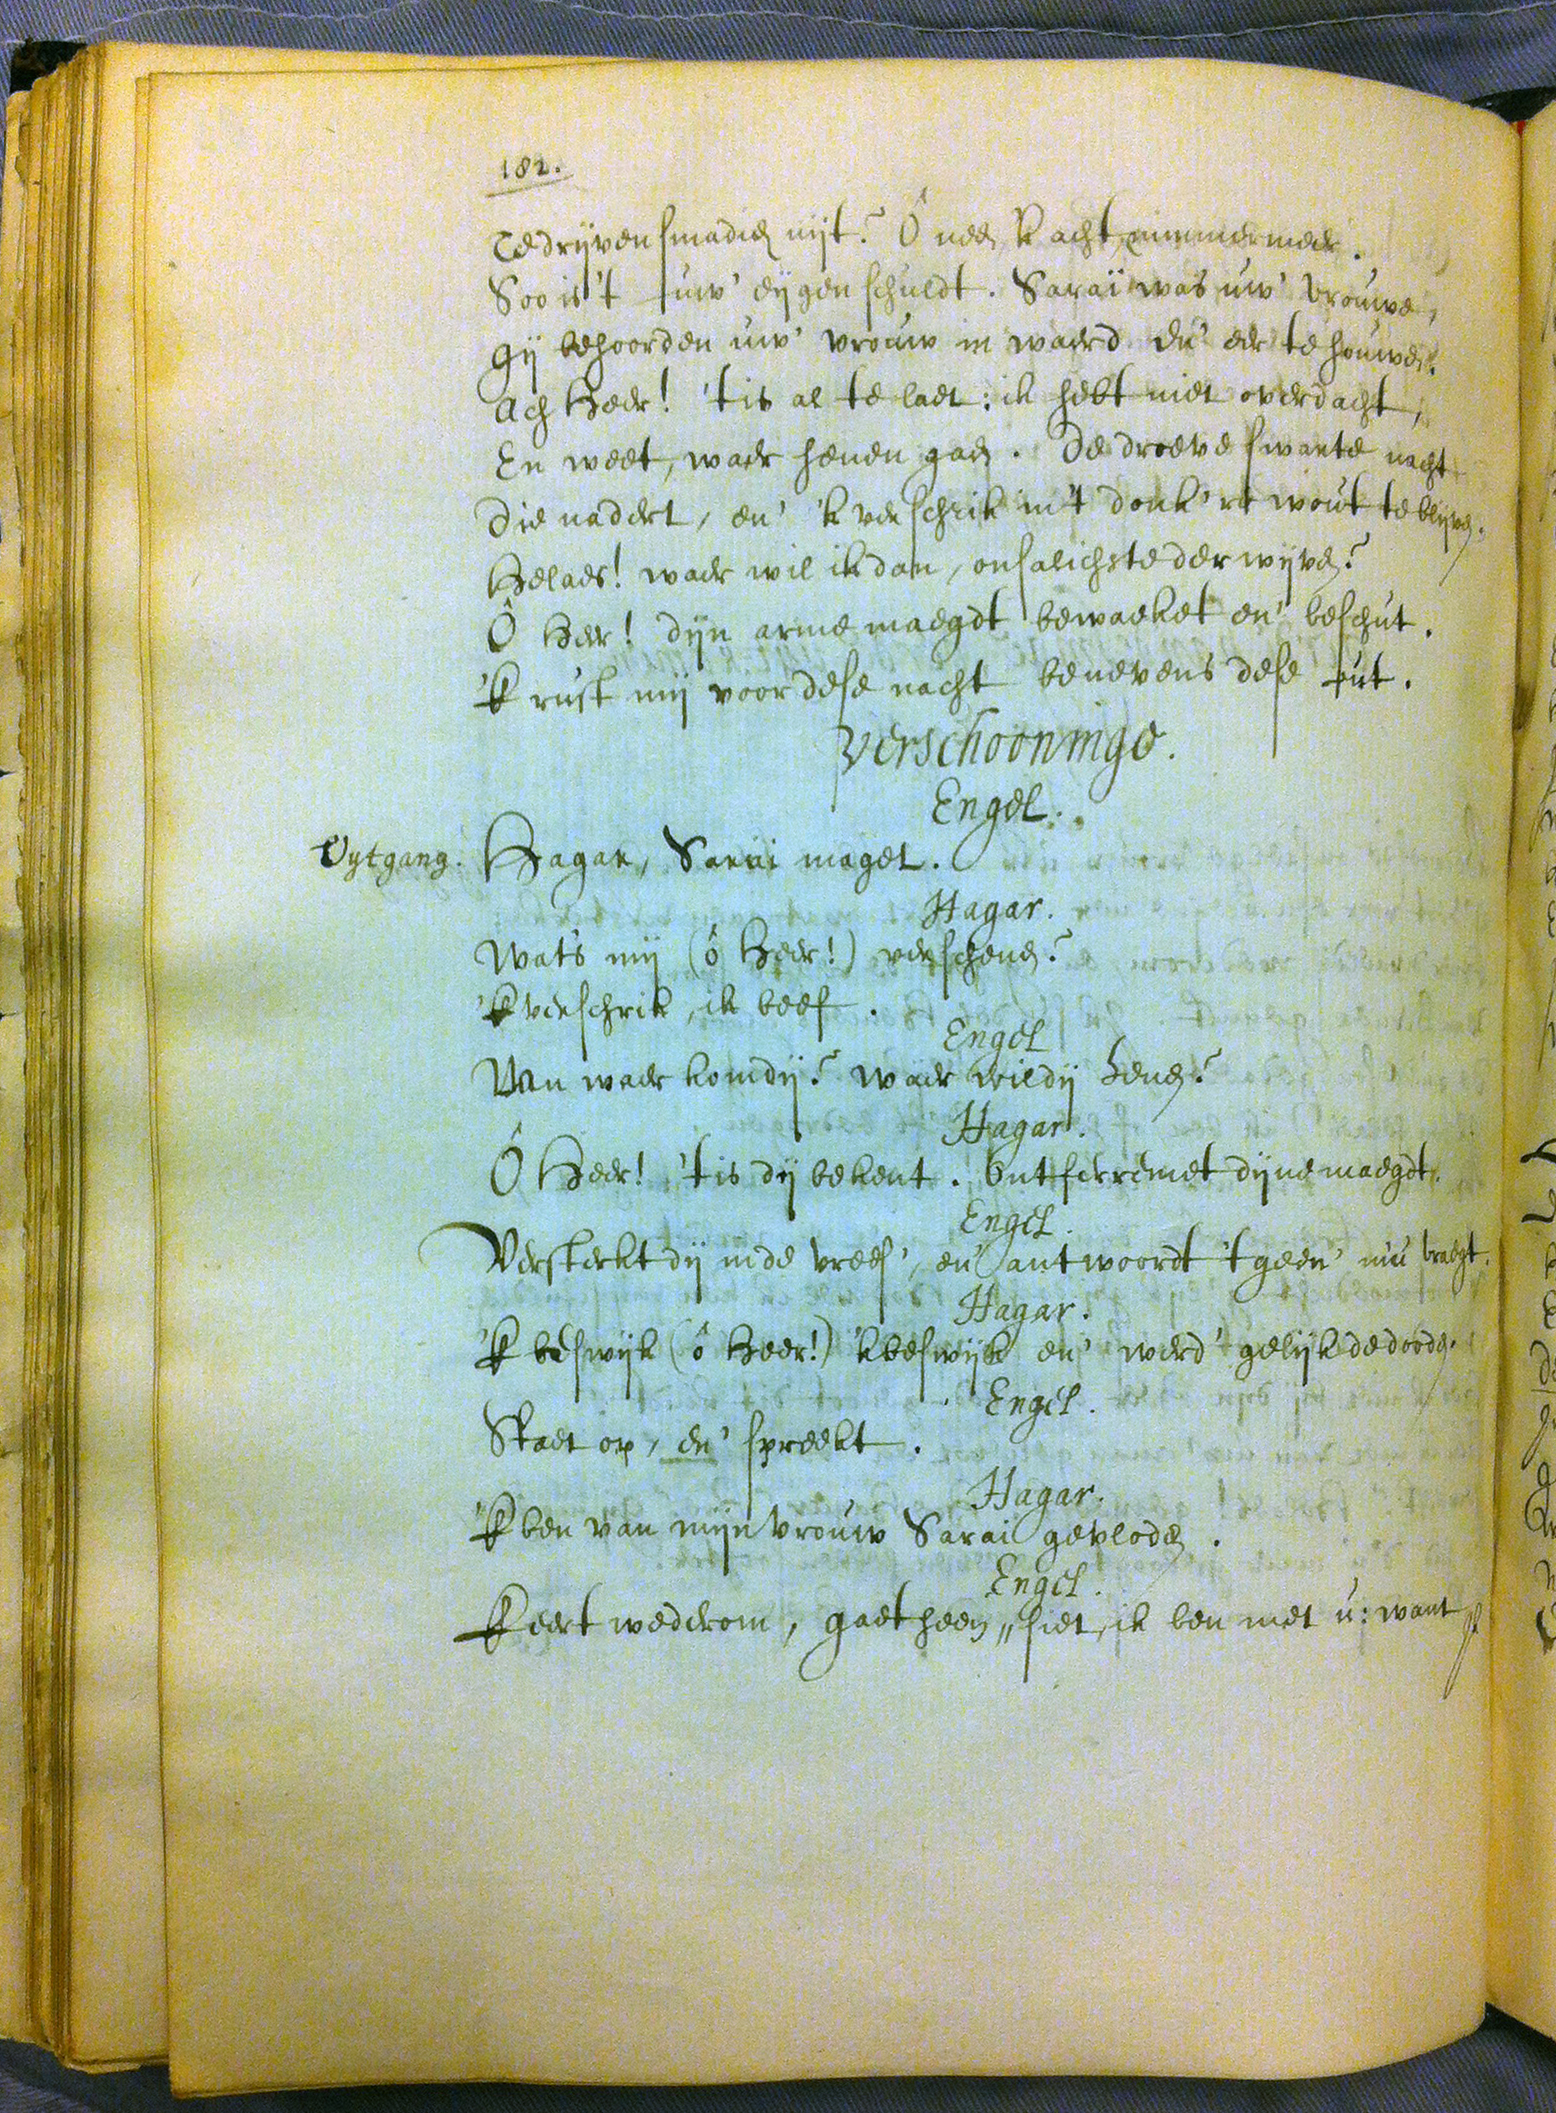 182.
Te drijven smadich nijt? Ô neen 'k acht, nimmermeer.
Soo is 't uw' eijgen schuldt. Saraï was uw' vrouwe,
Gij behoorden uw' vrouw in waerd en' eer te houwen.
Ach Heer! 'tis al te laet: ik hebt niet overdacht,
En weet, waer henen gaen. De droeve swarte nacht
Die nadert, en' 'k verschrik in't donk're wout te blijven.
Helaes! waer wil ik dan, onsalichste der wijven?
Ô Heer! dijn arme maegdt bewaeket en' beschut.
'K rust mij voor dese nacht benevens dese put.
Verschooninge.
Engel.
Uytgang. Hagar, Sarai maget.
Hagar.
Wat's mij (ô Heer!) verschenen?
'K verschrik, ik beef.
Engel
Van waer komdij? waer wildij henen?
Hagar.
Ô Heer! 'tis dij bekent. Ontferremet dijne maegdt.
Engel.
Versterkt dij in de vrees', en' antwoordt 't geen' nu vraegt.
Hagar.
'K beswijk (ô Heer!) 'k beswijk en' werd' gelijk de dooden.
Engel.
Staet op, en' spreekt.
Hagar.
'K ben van mijn vrouw Sarai gevloden.
Engel.
Keert wederom, gaet heen, siet, ik ben met u: want